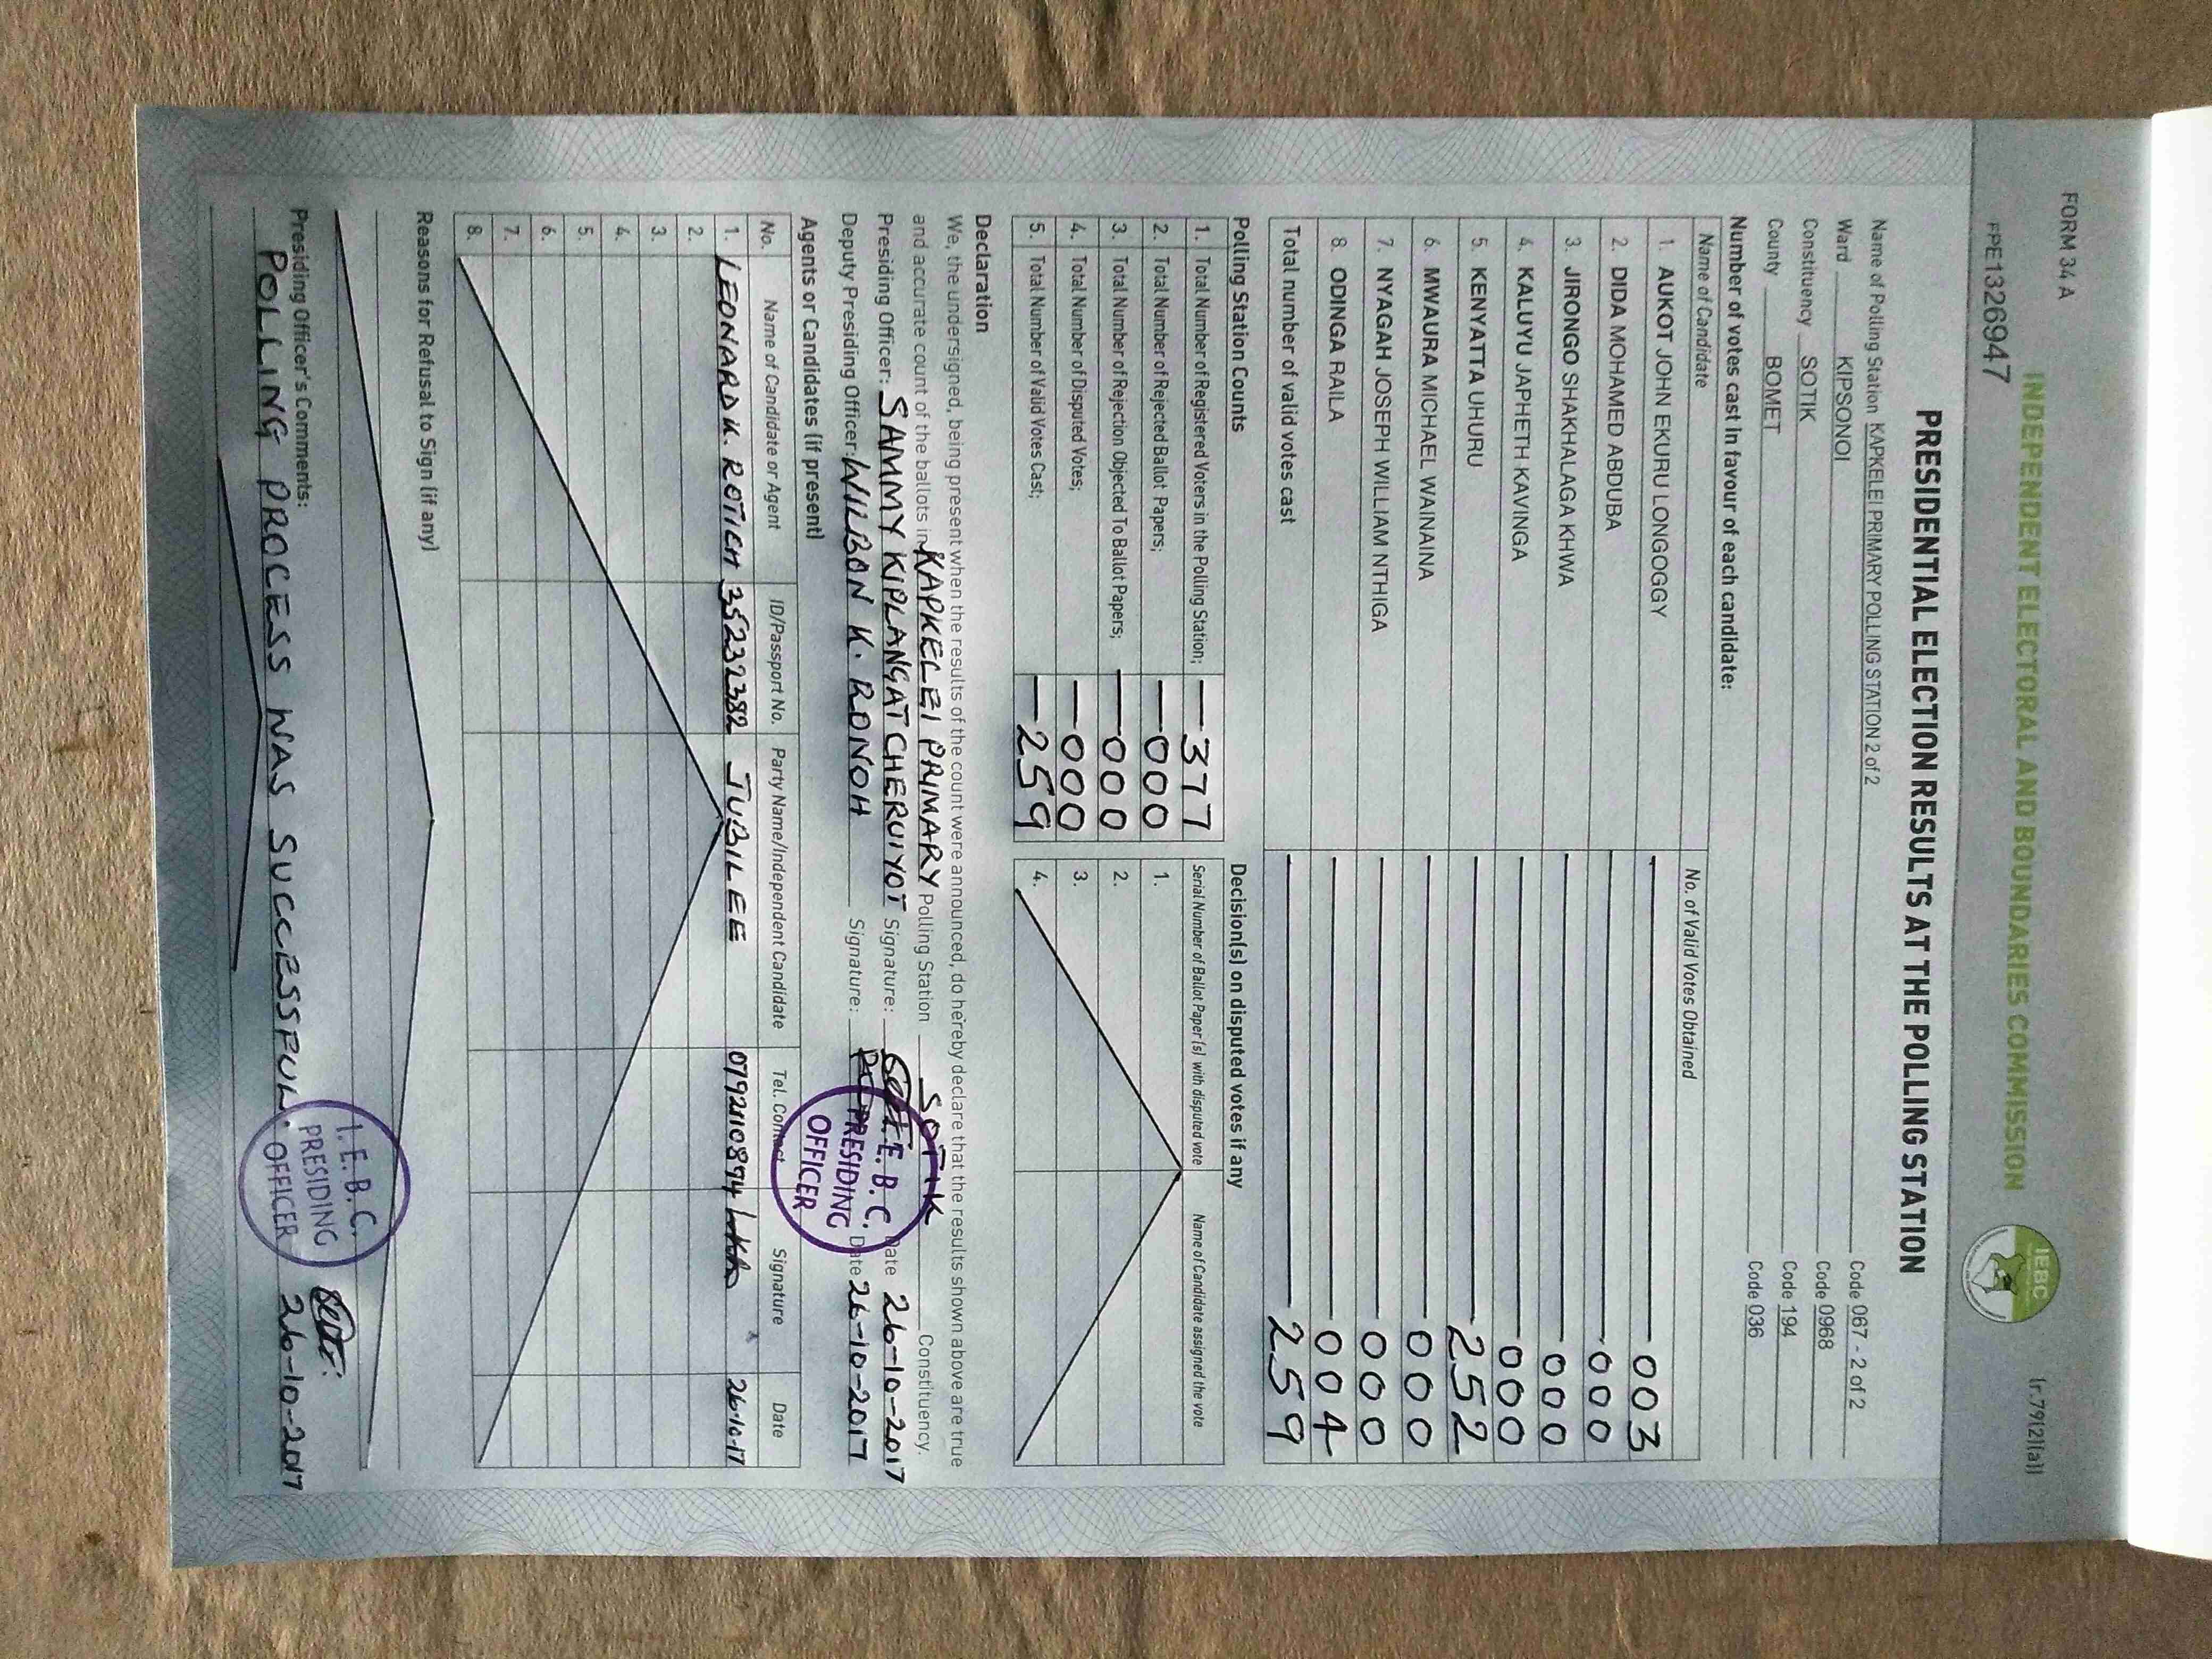 FORM 34 A
(r.79(2)(a))
INDEPENDENT ELECTORAL AND BOUNDARIES COMMISSION
IEBC
PRESIDENTIAL ELECTION RESULTS AT THE POLLING STATION
Name of Polling Station KAPKELEI PRIMARY POLLING STATION 2 of 2 Code 067 - 2 of 2
Ward KIPSONOI Code 0968
Constituency SOTIK Code 194
County BOMET Code 036
Number of votes cast in favour of each candidate:
Name of Candidate No. of Valid Votes Obtained
1. AUKOT JOHN EKURU LONGOGGY 003
2. DIDA MOHAMED ABDUBA 000
3. JIRONGO SHAKHALAGA KHWA 000
4. KALUYU JAPHETH KAVINGA 000
5. KENYATTA UHURU 252
6. MWAURA MICHAEL WAINAINA 000
7. NYAGAH JOSEPH WILLIAM NTHIGA 000
8. ODINGA RAILA 004
Total number of valid votes cast 259
Polling Station Counts
1. Total Number of Registered Voters in the Polling Station; 377
2. Total Number of Rejected Ballot Papers; 000
3. Total Number of Rejection Objected To Ballot Papers; 000
4. Total Number of Disputed Votes; 000
5. Total Number of Valid Votes Cast; 259
Decision(s) on disputed votes if any
Serial Number of Ballot Paper (s) with disputed vote Name of Candidate assigned the vote
1.
2.
3.
4.
Declaration
We, the undersigned, being present when the results of the count were announced, do hereby declare that the results shown above are true
and accurate count of the ballots in KAPKELEI PRIMARY Polling Station SOTIK Constituency.
Presiding Officer: SAMMY KIPLANGAT CHERUIYOT Signature: Date 26-10-2017
Deputy Presiding Officer: WILSON K. RONOH Signature: Date 26-10-2017
I.E.B.C.
PRESIDING
OFFICER
Agents or Candidates (if present)
No. Name of Candidate or Agent ID/Passport No. Party Name/Independent Candidate Tel. Contact Signature Date
1. LEONARD K. ROTICH 35232382 JUBILEE 26-10-17
2.
3.
4.
5.
6.
7.
8.
Reasons for Refusal to Sign (if any)
Presiding Officer's Comments:
POLLING PROCESS WAS SUCCESSFUL. 26-10-2017
I.E.B.C.
PRESIDING
OFFICER